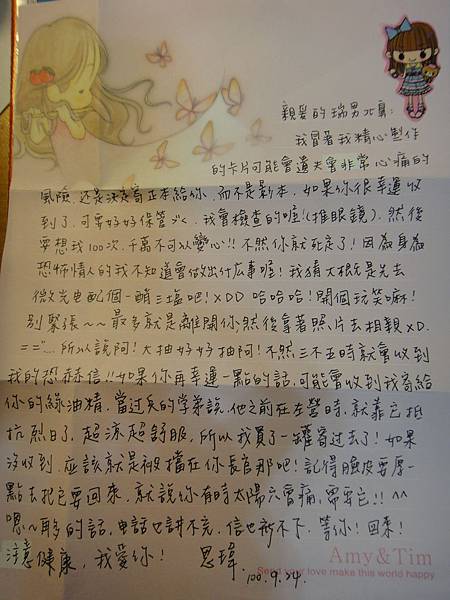 親愛的瑞男北鼻:
我冒著我精心製作
的卡片可能會遺失會非常心痛的
風險,還是決定寄正本給你,而不是影本,如果你很幸運收
到了,可要好好保管ㄋㄟ,我會檢查的喔!(推眼鏡),然後
要想我100次,千萬不可以變心!!不然你就死定了!因為身為
恐怖情人的我不知道會做出什厶事喔!我猜大概先是先去
微光电配個一
吧!XDD 哈哈哈!開個玩笑嘛!
別緊張~~最多就是離開你,然後拿著照片去相親XD.
==",…所以說阿!大抽好好抽阿!不然,三不五時就會收到
我的恐赫信!!如果你再幸運一點的話,可能會收到我寄給
你的綠油精,當过兵的学弟說,他之前在左營時,就靠它抵
抗烈日了,超涼超舒服,所以我買了一罐寄过去了!如果
沒收到,应該就是被擋在你長官那吧!記得臉皮要厚一
點去把它要回來,就說你有時太陽穴會痛,需要它!!^^
嗯~夠的話,电話也講不完,信也
不下,等你!回來!
注意健康,我愛你! 思瑋.
100.9.24.
Amy&Tim
Send your love make this world happy